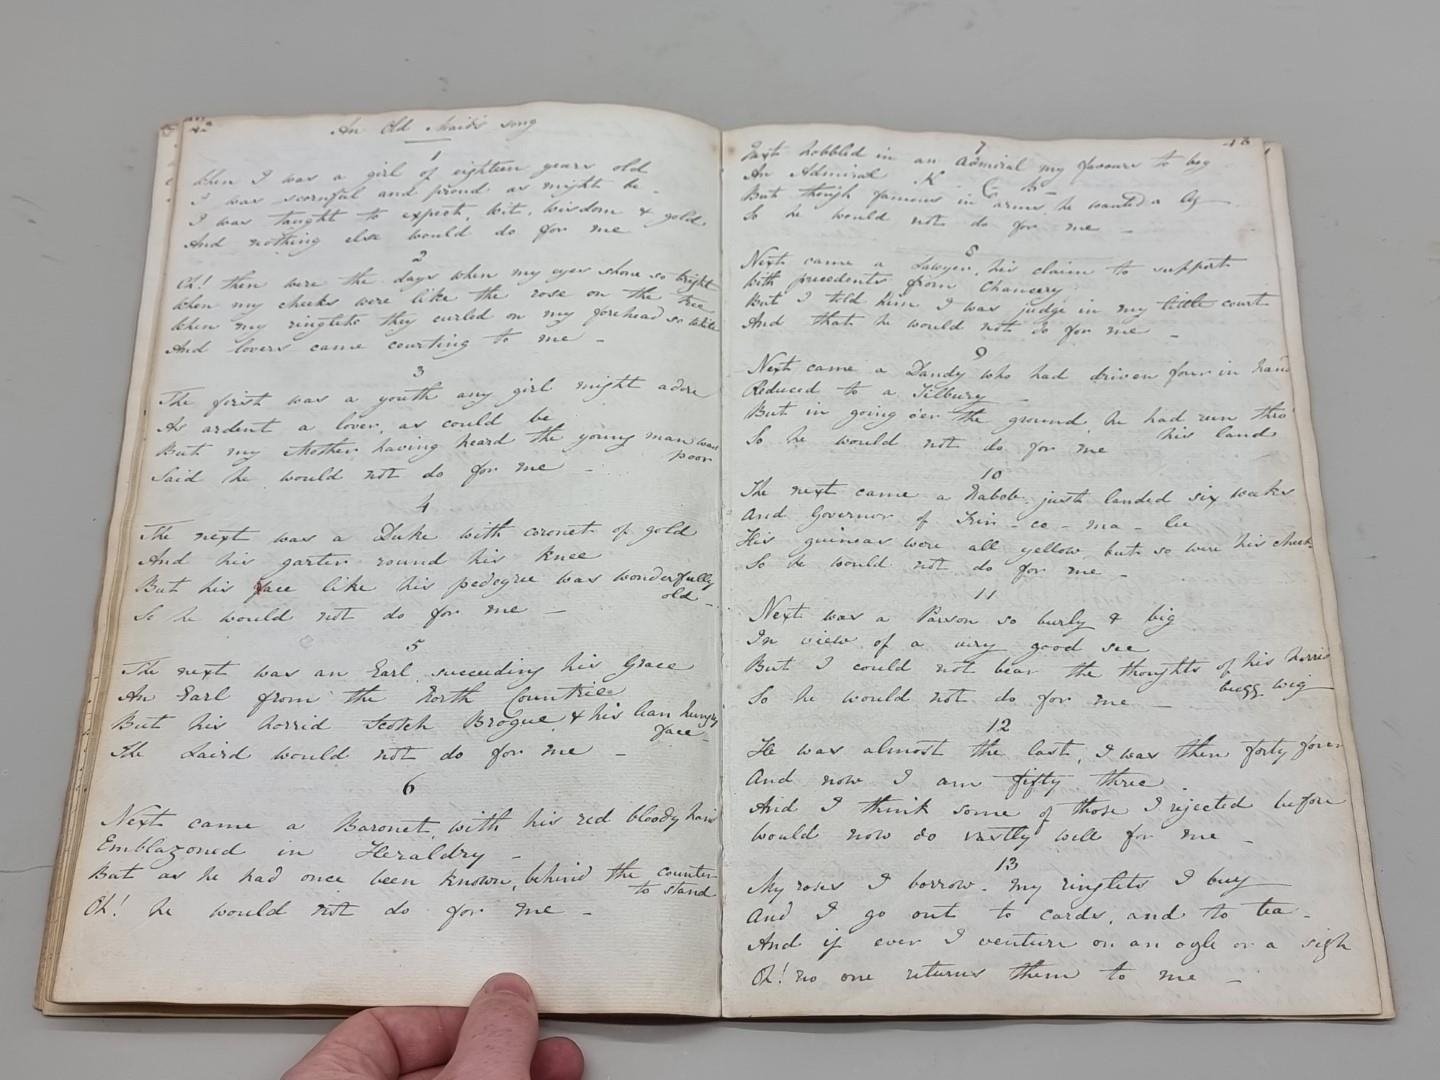 An Old Maid's song
1
When I was a girl of eighteen years old
I was scornful and proud as might be -
I was taught to expect, wit, wisdom & gold
And nothing else would do for me
2
Oh! then were the days when my eyes shone so bright
When my cheeks were like the rose on the tree
When my ringlets they curled on my forehead so white
And lovers came courting to me -
3
The first was a youth any girl might adore
As ardent a lover, as could be
But my Mother having heard the young man was
poor
Said he would not do for me -
4
The next was a Duke with coronet of gold
And his garter round his knee
But his face like his pedegree was wonderfully
old -
So he would not do for me -
5
The next was an Earl succeeding his Grace
An Earl from the North Countrie
But his horrid Scotch Brogue & his lean hungry
face -
The Laird would not do for me -
6
Next came a Baronet, with his red bloody hand
Emblazoned in Heraldry -
But as he had once been known, behind the counter
to stand
Oh! he would not do for me -
13
7
Next hobbled in an Admiral my favours to beg
An Admiral K C B -
But though famous in arms, he wanted a leg
So he would not do for me -
8
Next came a Lawyer, his claim to support
With precedents from Chancery
But I told him I was judge in my little court
And that he would not do for me -
9
Next came a Dandy who had driven four in hand
Reduced to a Tilbury -
But in going o'er the ground, he had run thro'
his land
So he would not do for me
10
The next came a Nabob, just landed six weeks
And Governor of Trin - co - ma - lee
His guineas were all yellow but so were his cheeks
So he would not do for me -
11
Next was a Parson so burly & big
In view of a very good see
But I could not bear the thoughts of his horrid
bugg wig
So he would not do for me -
12
He was almost the last, I was then forty four
And now I am fifty three
And I think some of those I rejected before
Would now do vastly well for me -
13
My roses I borrow - my ringlets I buy
And I go out to cards, and to tea -
And if ever I venture on an ogle or a sigh
Oh! no one returns them to me -